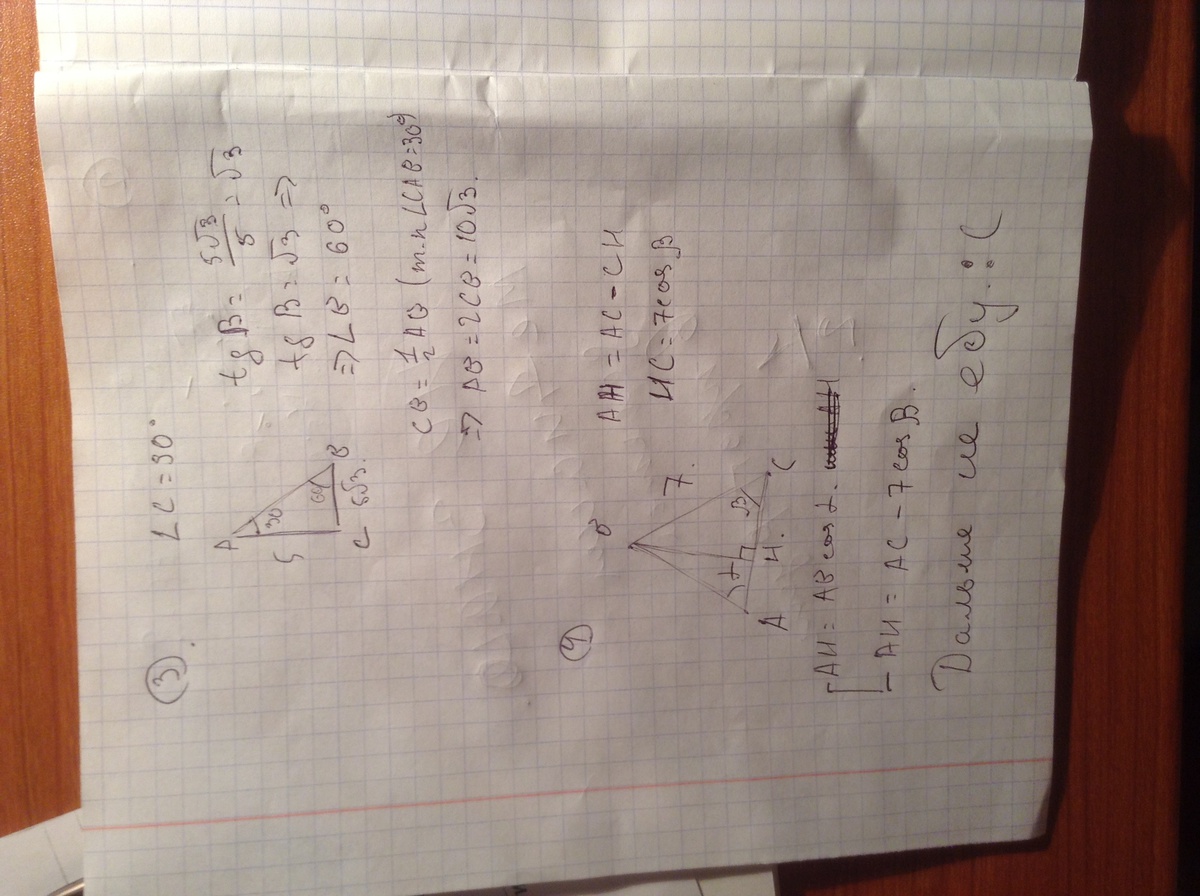 ③.
∠C = 90°
A
30
5
60
C
B
5√3.
tg B = 5√3/5 = √3
tg B = √3 ⇒
⇒ ∠B = 60°
CB = 1/2 AB (т.к ∠CAB = 30°)
⇒ AB = 2CB = 10√3.
④
B
7.
α
β
A
H.
C
AH = AC - CH
HC = 7cosβ
AH = AB cosα.
AH = AC - 7cosβ.
Дальше не ебу. :(